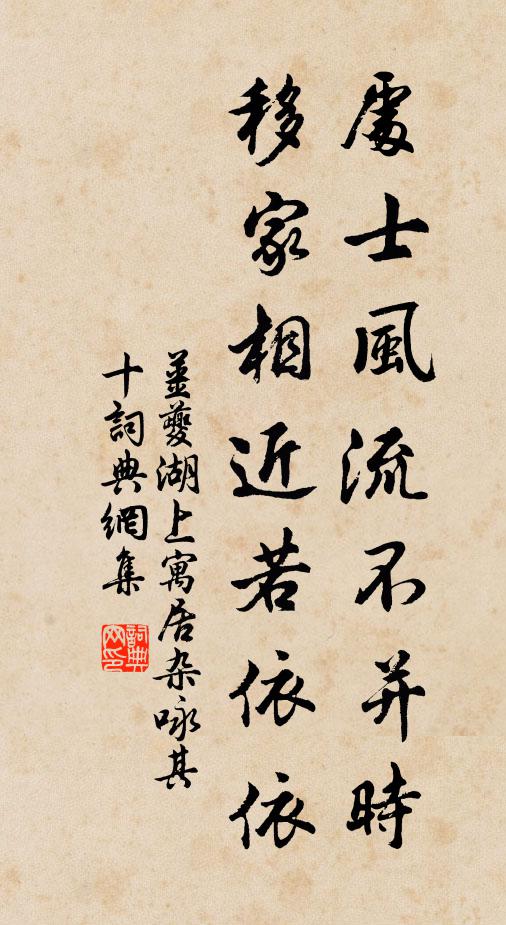 處士風流不并時
移家相近若依依
姜夔湖上寓居杂咏其
十詞典網集
詞典
网印